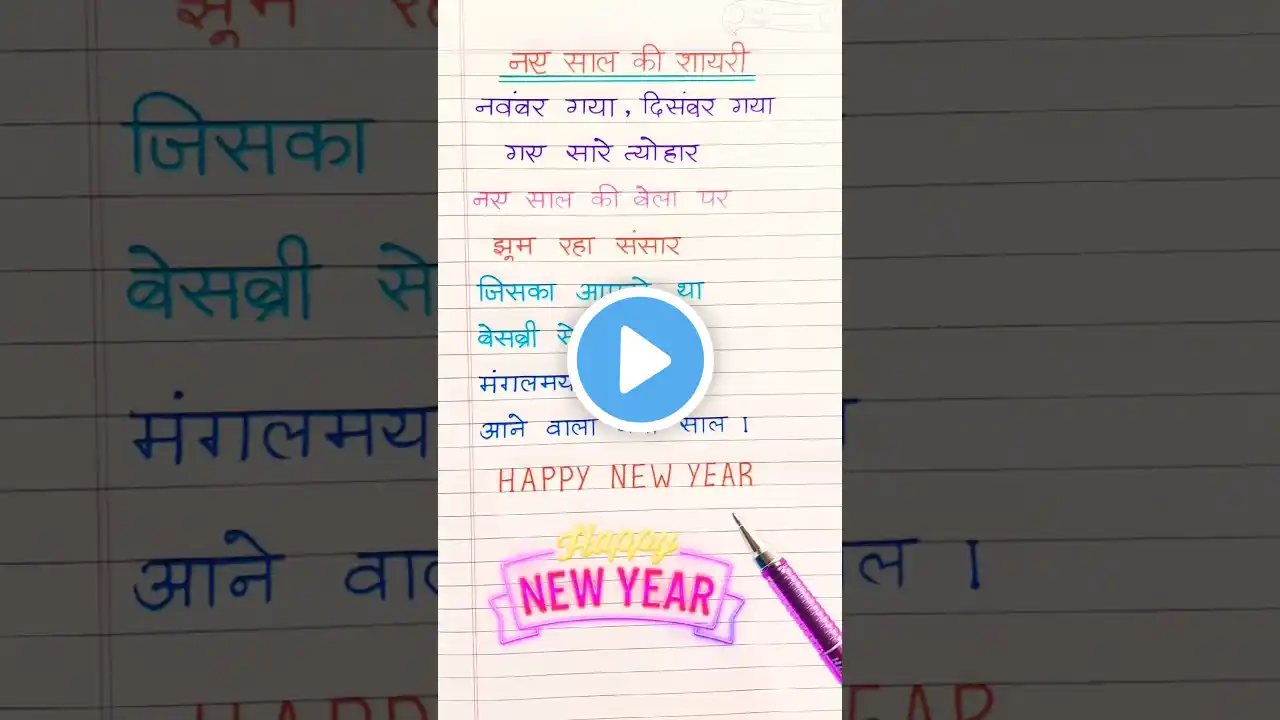 नए साल की शायरी
नवंबर गया, दिसंबर गया
गए सारे त्योहार
नए साल की बेला पर
झूम रहा संसार
जिसका था
बेसब्री से
मंगलमय
आने वाला साल ।
HAPPY NEW YEAR
Happy
NEW YEAR
जिसका
बेसब्री से
मंगलमय
आने